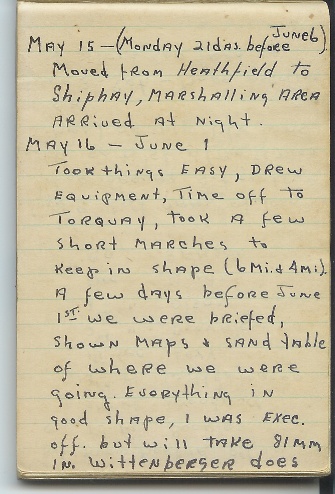 MAY 15 – (MONDAY 21 DAS. before JUNE 6)
Moved from Heathfield to
Shiphay, MARShAlling AREA
ARRived At Night.
MAY 16 – JUNE 1
Took things EASY, DREW
EQUIPMENT, TIME off to
TORQUAY, took A few
short MARCHES to
Keep in shape (6 Mi. & 4 Mi.).
A few days before June
1ST. we were briefed,
shown MAPS & SAND table
of where we were
going. Everything in
good shape, I WAS EXEC.
off. but will take 81MM
IN. Wittenberger does